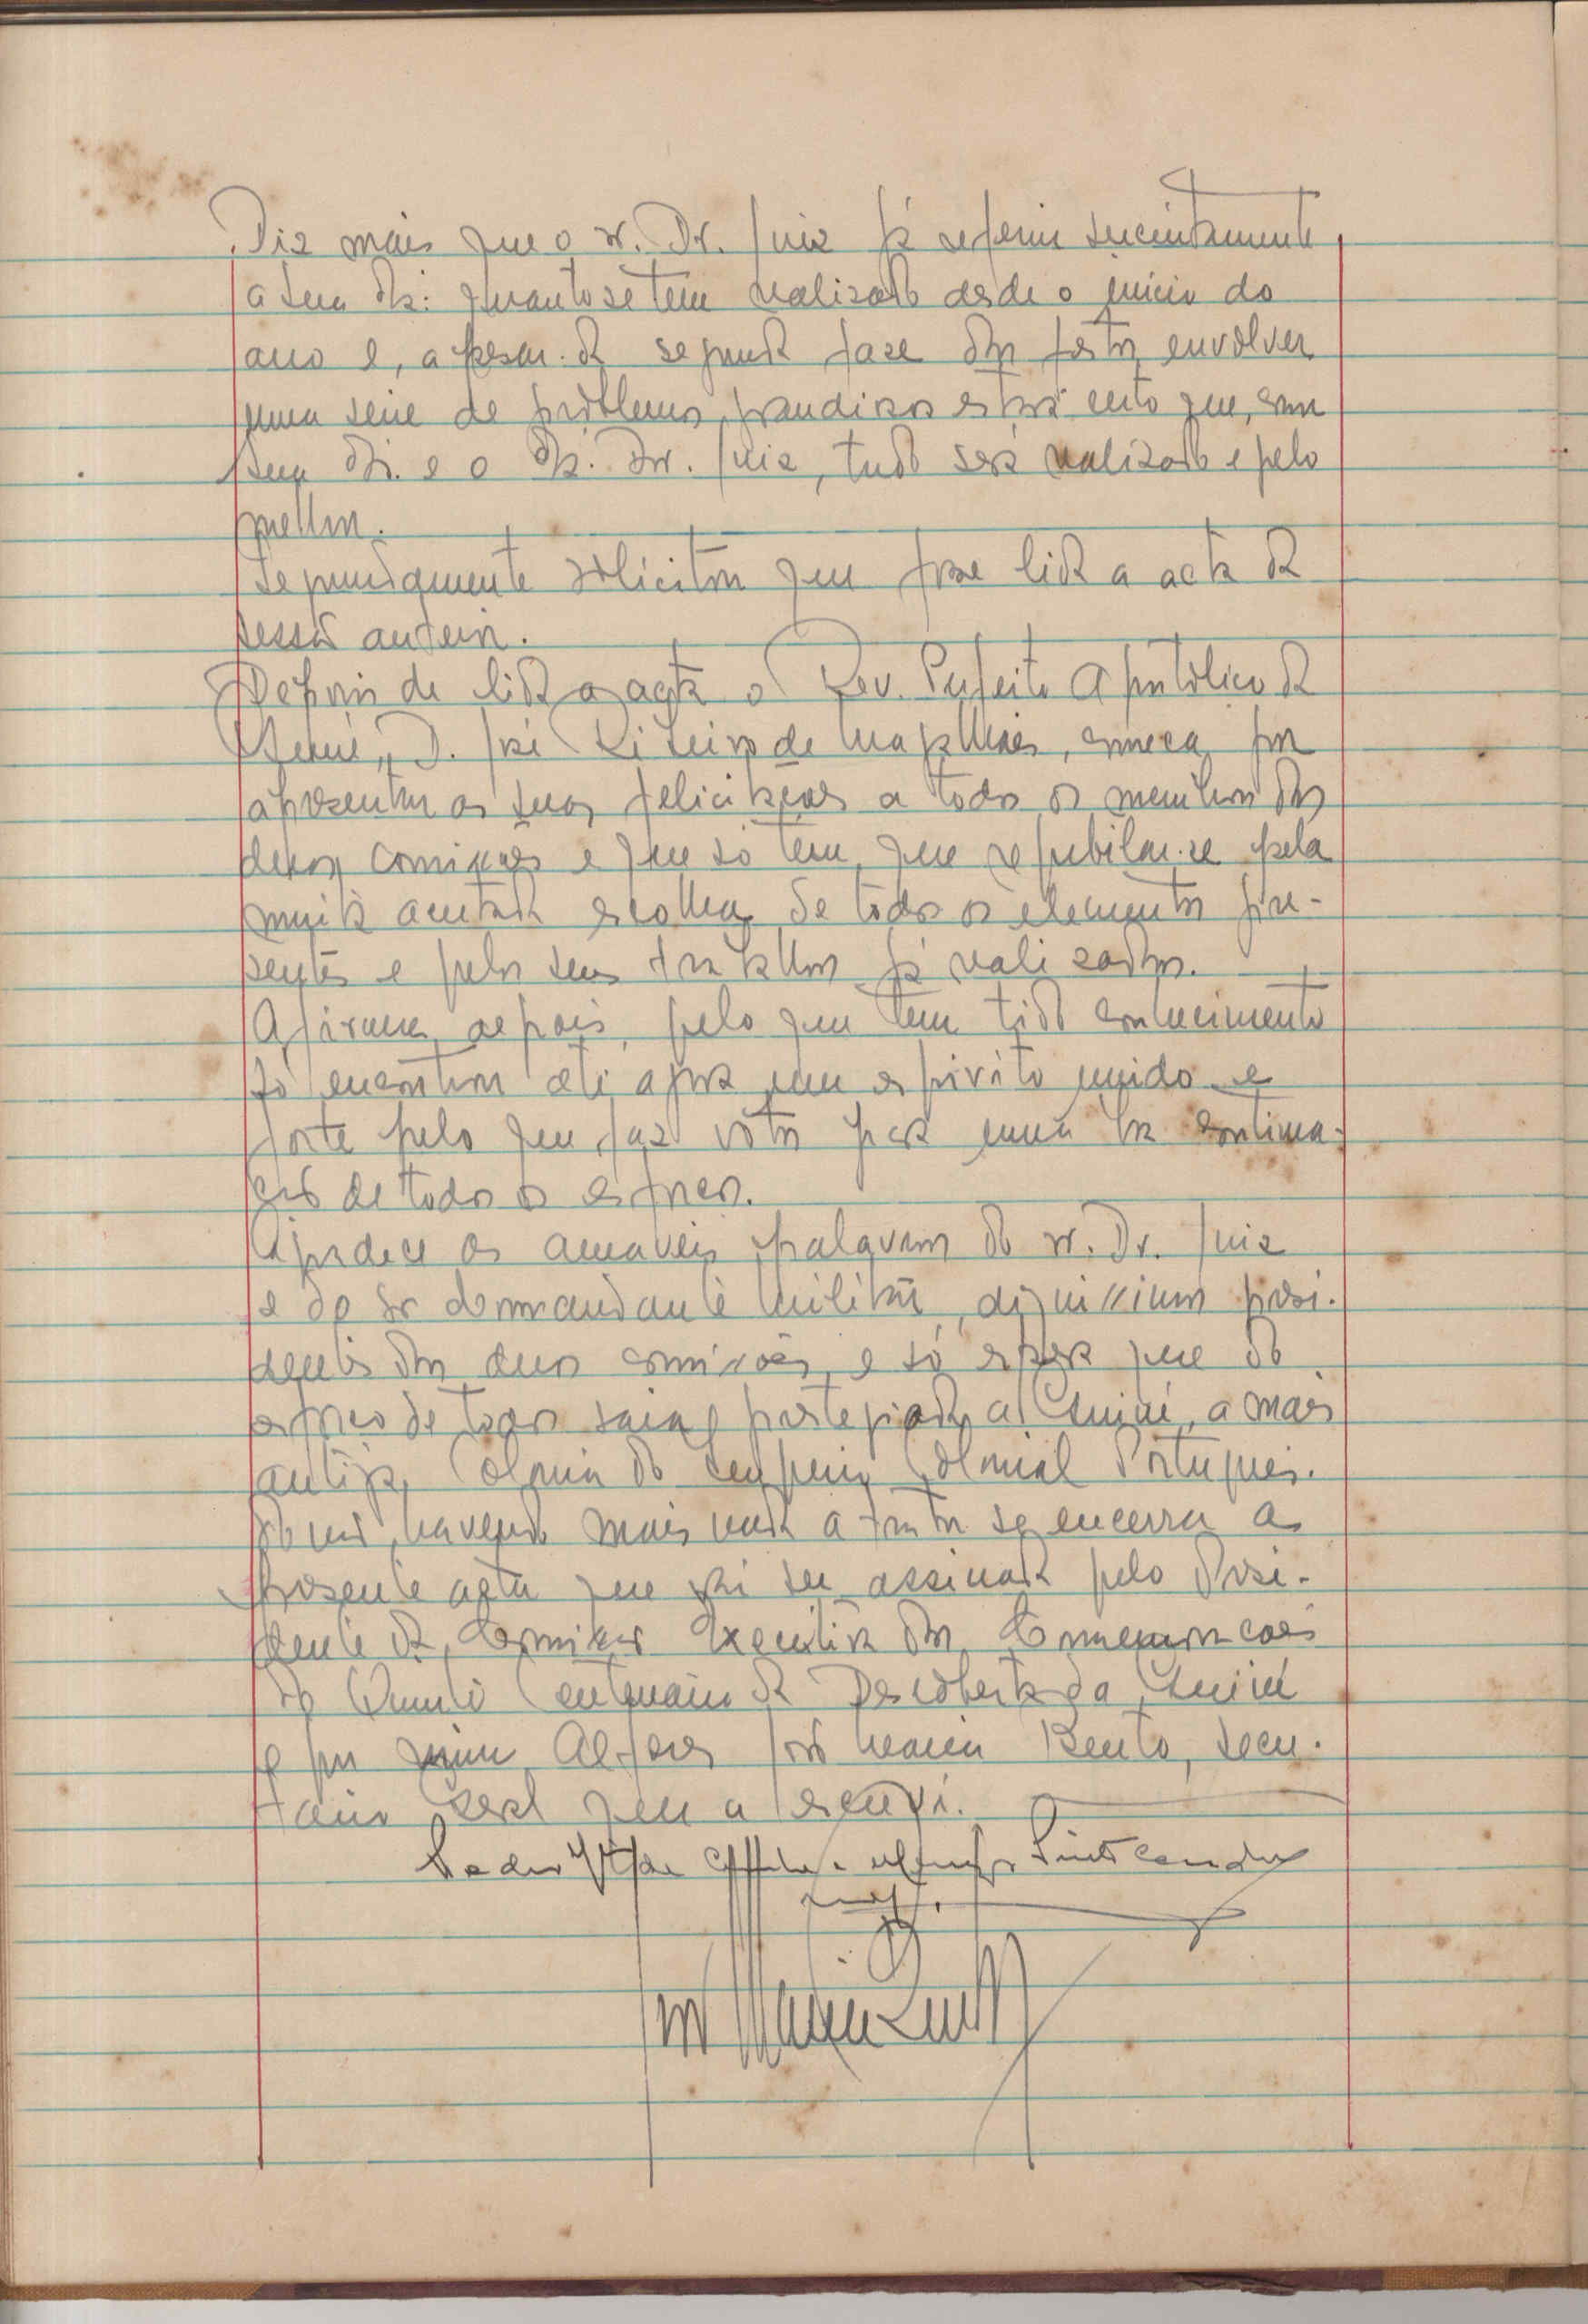 Diz mais que o sr. Dr. Juiz já referiu sucintamente
a sua quanto se tem realizado desde o início do
ano e, apesar da segunda fase das festas envolver
uma série de problemas grandiosos estará certo que, com
sua e o Dr. Juiz, tudo será realizado e pelo
melhor.
Seguidamente solicitou que fosse lida a acta da
sessão anterior.
Depois de lida a acta o Rev. Prefeito Apostólico da
Guiné, D. José Ribeiro de Magalhães, começa por
apresentar as suas felicitações a todos os membros das
duas comissões e que só tem que rejubilar-se pela
muito acertada escolha de todos os elementos pre-
sentes e pelos seus trabalhos já realizados.
Afirma depois, pelo que tem tido conhecimento
só encontrou até agora um espírito unido e
forte pelo que faz votos para uma continua-
ção de todos os esforços.
Agradece as amáveis palavras do sr. Dr. Juiz
e do sr Comandante Militar, digníssimos presi-
dentes das duas comissões e só espera que do
esforço de todos saia prestigiada a Guiné, a mais
antiga Colónia do Império Colonial Português.
E não havendo mais nada a tratar se encerra a
presente acta que vai ser assinada pelo Presi-
dente da Comissão Executiva das Comemorações
do Quinto Centenário da Descoberta da Guiné
e por mim Alferes João Maria Bento, secre-
tário geral que a escrevi.
Pinto Cardoso
João Maria Bento